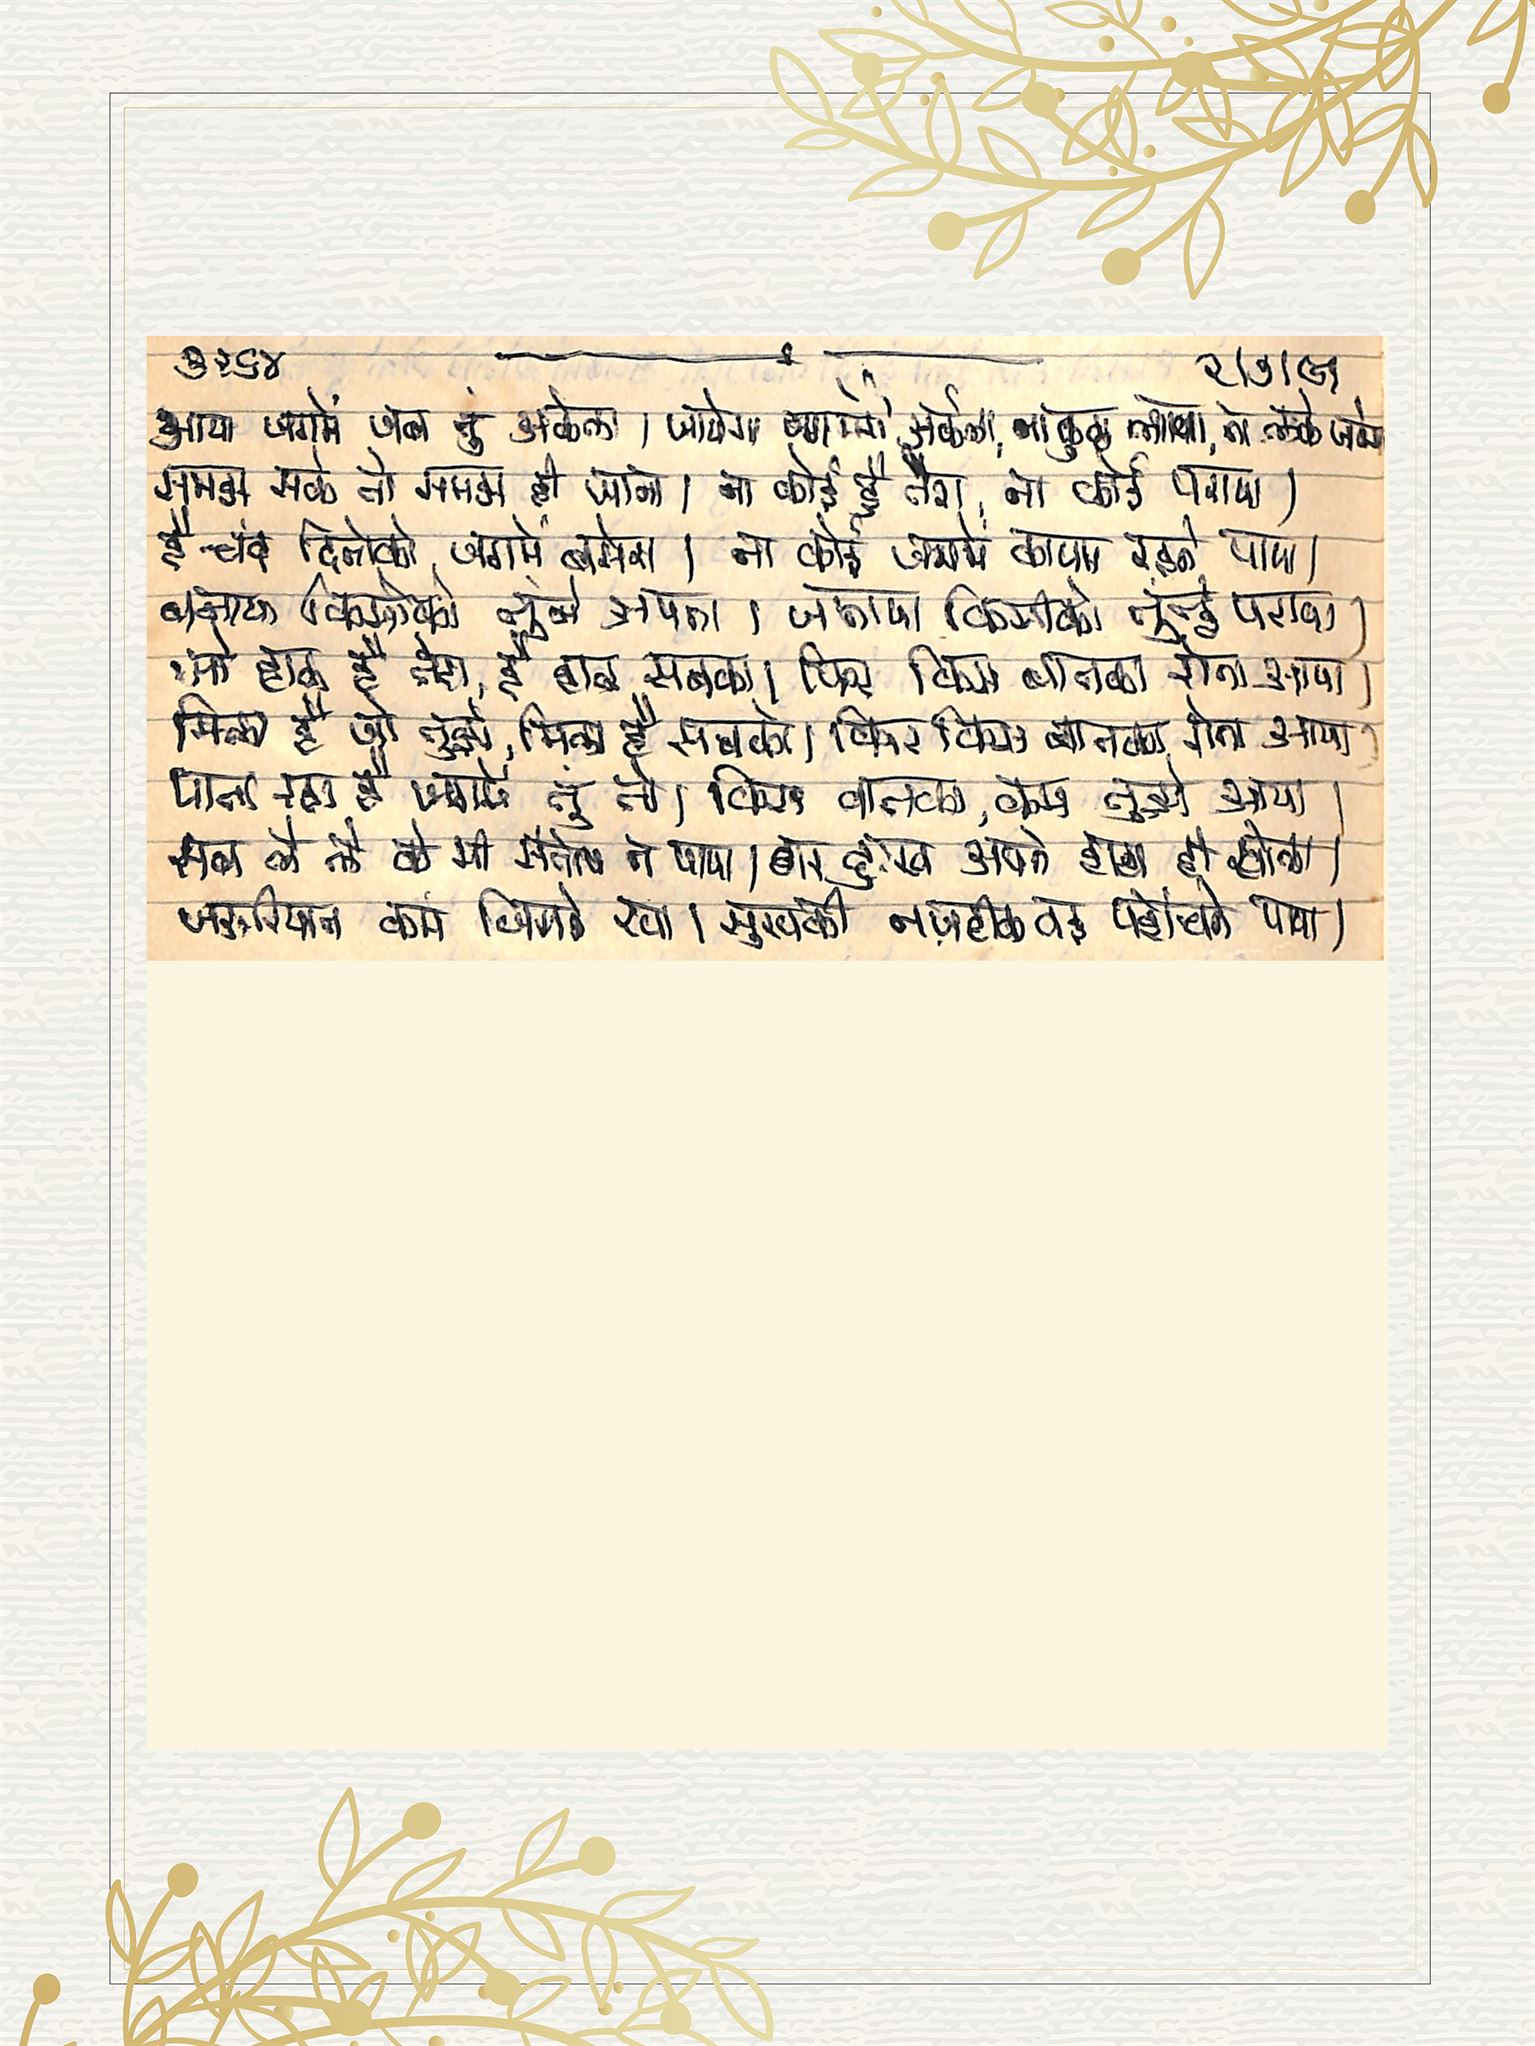 ३२९४ २।७।९१
आया जगमें जब तुं अकेला। जायेगा जगमें अकेला, ना कुछ लाया, ना लेके जाये
समझ सके तो समझ ही जाना। ना कोई है तेरा, ना कोई पराया।
है चंद दिनोका जगमें बसेरा। ना कोई जगमें कायम रहने पाया।
बनाया किसीको तुंने अपना। जताया किसीको तुंने पराया।
जो हाल है तेरा, है हाल सबका। फिर किस बातका रोना आया।
मिला है जो तुझे, मिला है सबको। फिर किस बातका रोना आया।
पाता रहा है जगमें तुं तो। किस बातका, कम तुझे आया।
सब ले ले के भी संतोष न पाया। द्वार दुःख अपने हाथ ही खोला।
जरूरियात कम जिसने रखा। सुखकी नज़दीक वह पहोंचने पाया।